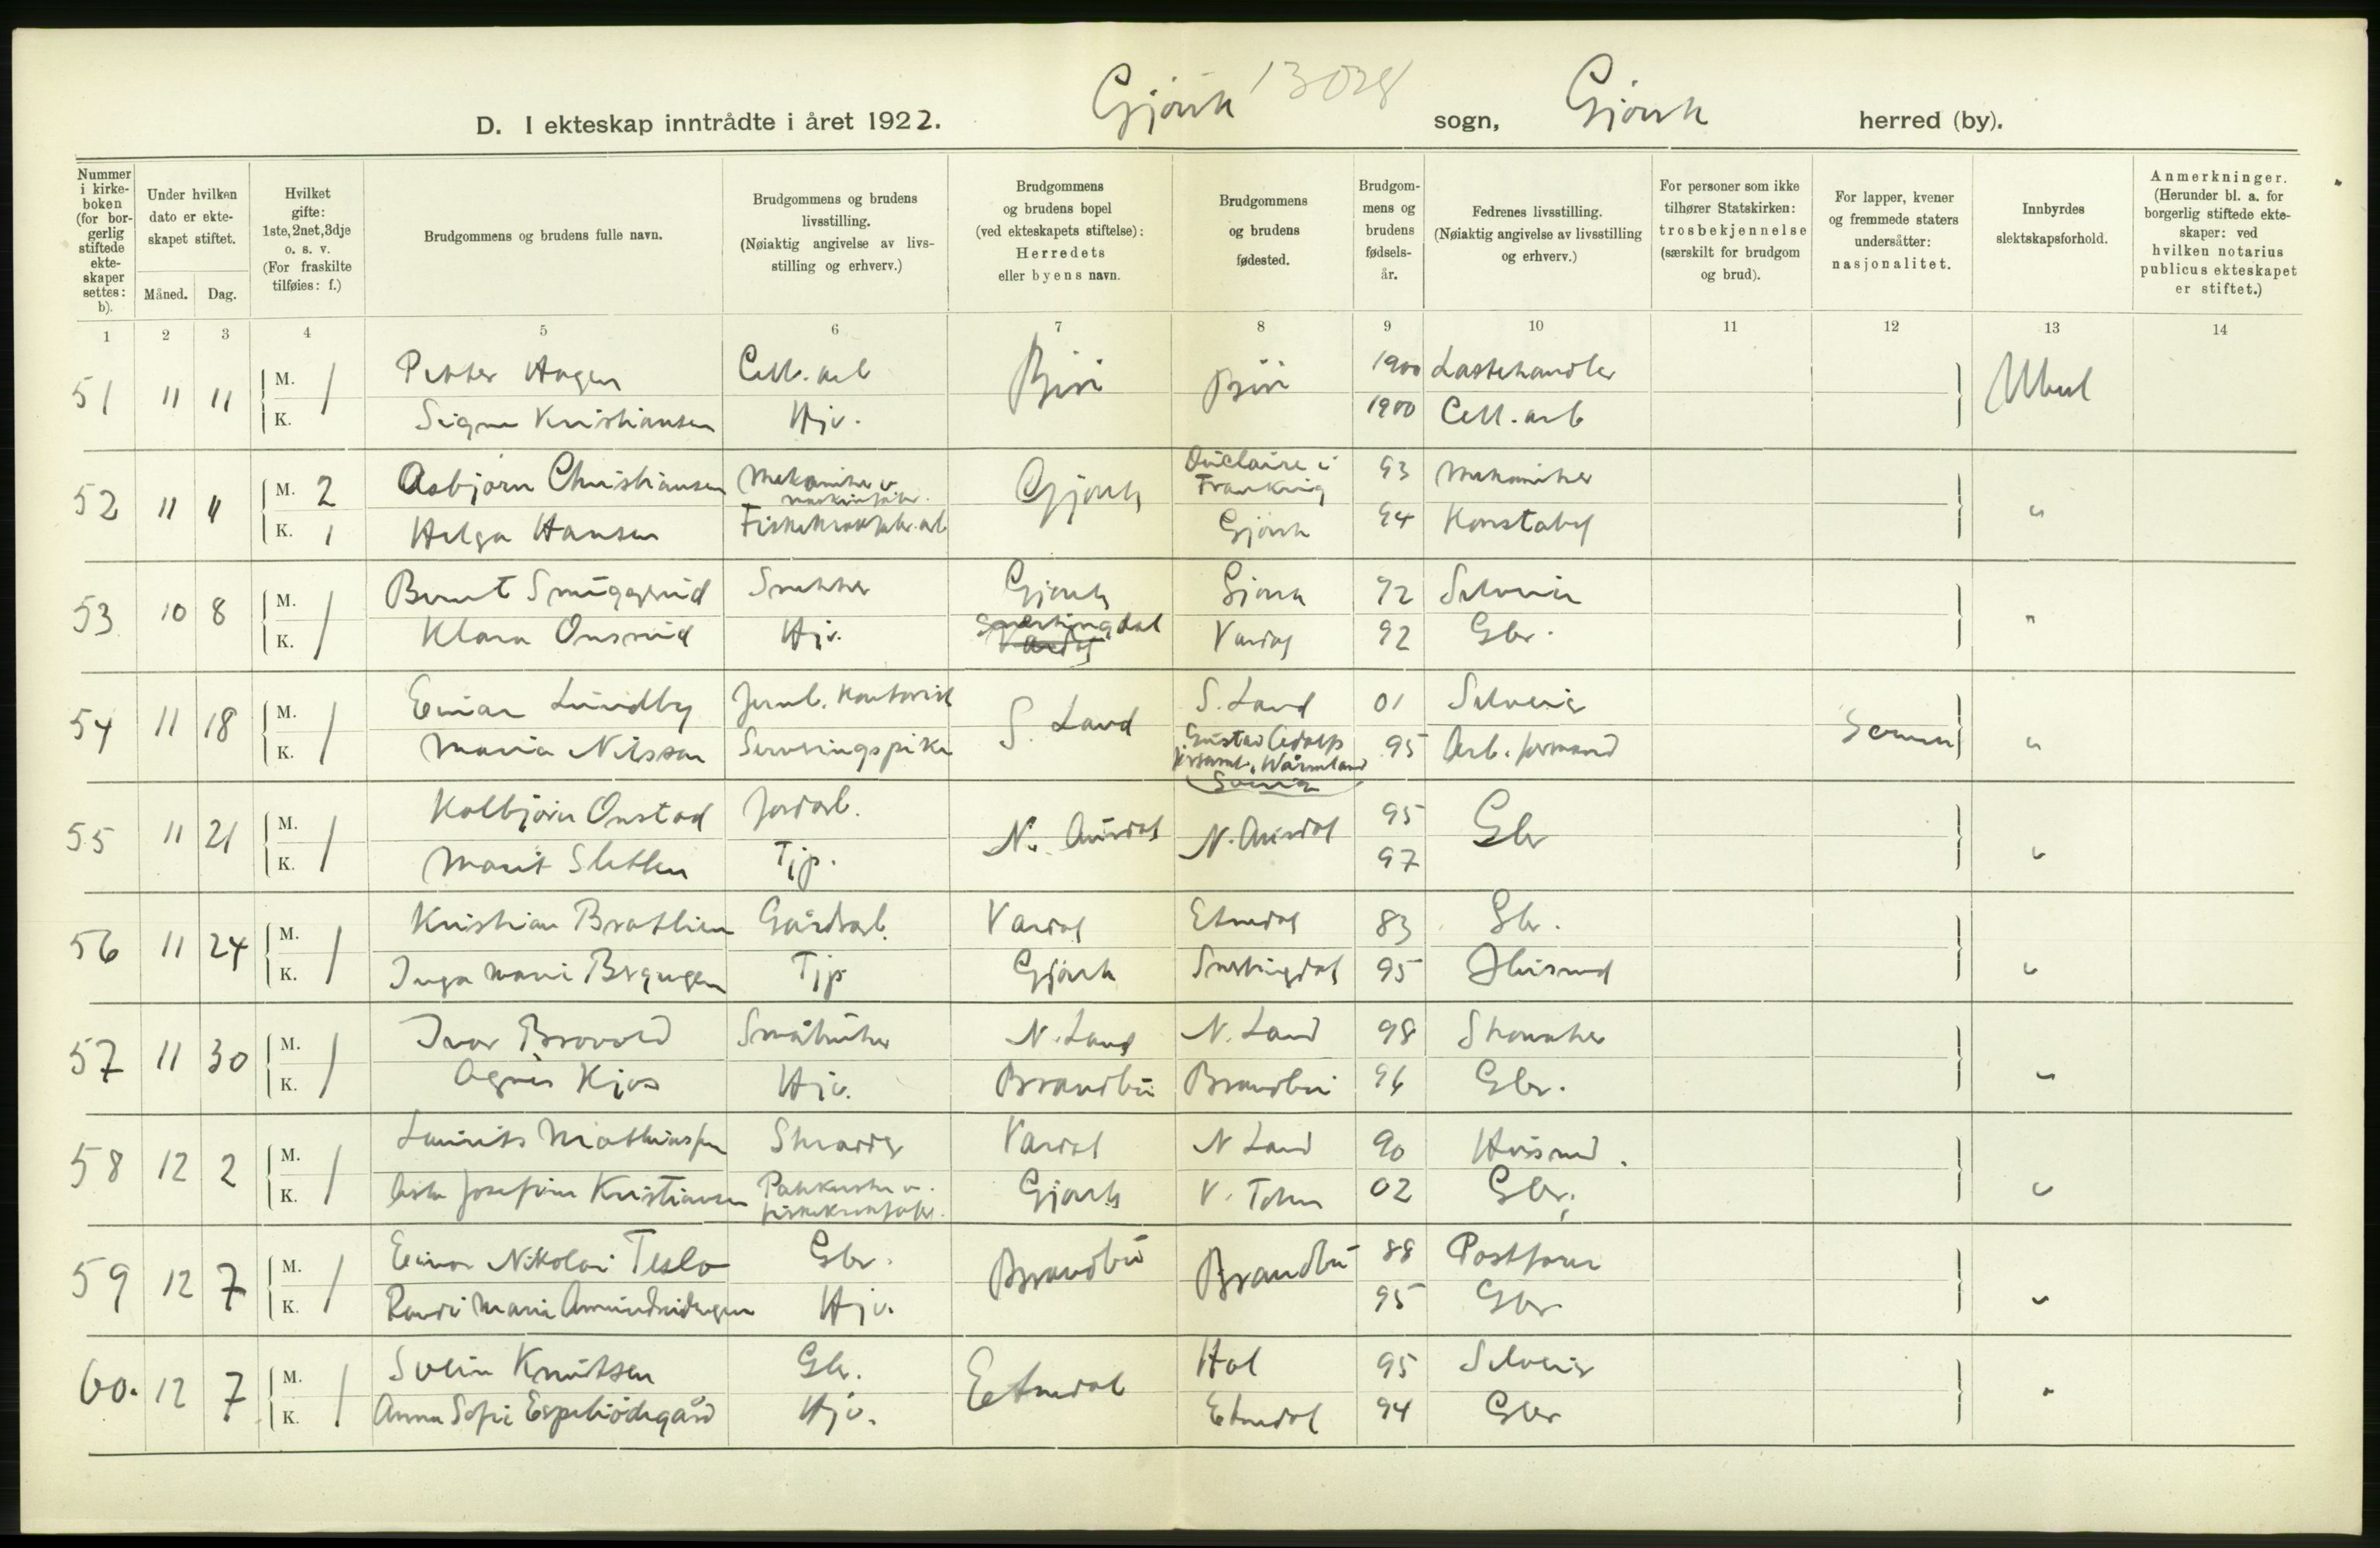 Gjövik 13028 Gjövik
D. I ekteskap inntrådte i året 1922. sogn, herred (by).
Nummer i kirkeboken (for borgerlig stiftede ekteskaper settes: b).
Under hvilken dato er ekteskapet stiftet.
Måned. Dag.
Hvilket gifte: 1ste, 2net, 3dje o. s. v. (For fraskilte tilføies: f.)
Brudgommens og brudens fulle navn.
Brudgommens og brudens livsstilling. (Nøiaktig angivelse av livsstilling og erhverv.)
Brudgommens og brudens bopel (ved ekteskapets stiftelse): Herredets eller byens navn.
Brudgommens og brudens fødested.
Brudgommens og brudens fødselsår.
Fedrenes livsstilling. (Nøiaktig angivelse av livsstilling og erhverv.)
For personer som ikke tilhører Statskirken: trosbekjennelse (særskilt for brudgom og brud).
For lapper, kvener og fremmede staters undersåtter: nasjonalitet.
Innbyrdes slektskapsforhold.
Anmerkninger. (Herunder bl. a. for borgerlig stiftede ekteskaper: ved hvilken notarius publicus ekteskapet er stiftet.)
1 2 3 4 5 6 7 8 9 10 11 12 13 14
51 11 11 M. 1 Petter Hagen Cell. arb Biri Biri 1900 Lastehandler Ubesl
K. Signe Kristiansen Hjv. 1900 Cell. arb
52 11 11 M. 2 Asbjörn Christiansen Mekaniker v. Gjövik i Frankrig 93 Mekaniker "
K. 1 Helga Hansen Gjövik 94 Konstabel
53 10 8 M. 1 Bernt Smüggerud Snekker Gjövik Gjövik 92 Selveier "
K. Klara Onsrud Hjv. Snertingdal Vardal Vardal 92 Gbr.
54 11 18 M. 1 Einar Lundby Jernb. kontorist S. Land S. Land 01 Selveier "
K. Maria Nilsson Serveringspike Gustav Adolfs församl., Wärmland Sverige 95 Arb. formand Svensk
55 11 21 M. 1 Kolbjörn Onstad Jordarb. N. Aurdal N. Aurdal 95 Gbr "
K. Marit Sletten Tjp. 97
56 11 24 M. 1 Kristian Bratlien Gårdsarb. Vardal Etnedal 83 Gbr. "
K. Inga Marie Bergengen Tjp. Gjövik Snertingdal 95 Husmd
57 11 30 M. 1 Ivar Brovold Småbruker N. Land N. Land 98 Skomaker "
K. Agnes Kjos Hjv. Brandbu Brandbu 96 Gbr.
58 12 2 M. 1 Laurits Mathiassen Skrædder Vardal N Land 90 Husmd. "
K. Josefine Kristiansen Pakkerske v. Gjövik V. Toten 02 Gbr.
59 12 7 M. 1 Einar Nikolai Teslo Gbr. Brandbu Brandbu 88 Postförer "
K. Randi Marie Amundridengen Hjv. 95 Gbr.
60. 12 7 M. 1 Svein Knutsen Gbr. Etnedal Hol 95 Selveier "
K. Anna Sofie Espeliödegård Hjv. Etnedal 94 Gbr